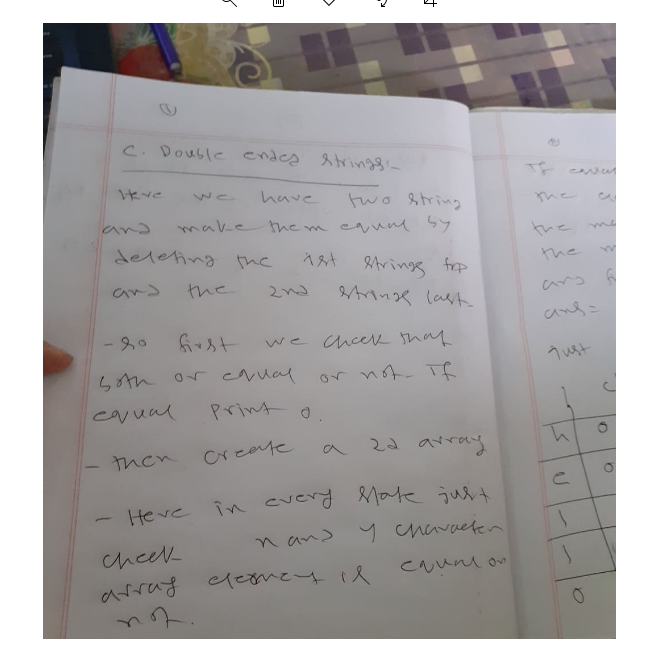 ①
C. Double ended strings:-
Here we have two string
and make them equal by
deleting the 1st strings top
and the 2nd strings last.
- so first we check that
both or equal or not. If
equal print 0.
- then create a 2d array
- Here in every state just
check x and y character
array element is equal or
not.
If
the
the
the
and
ans=
just
h 0
e 0
l
l
o